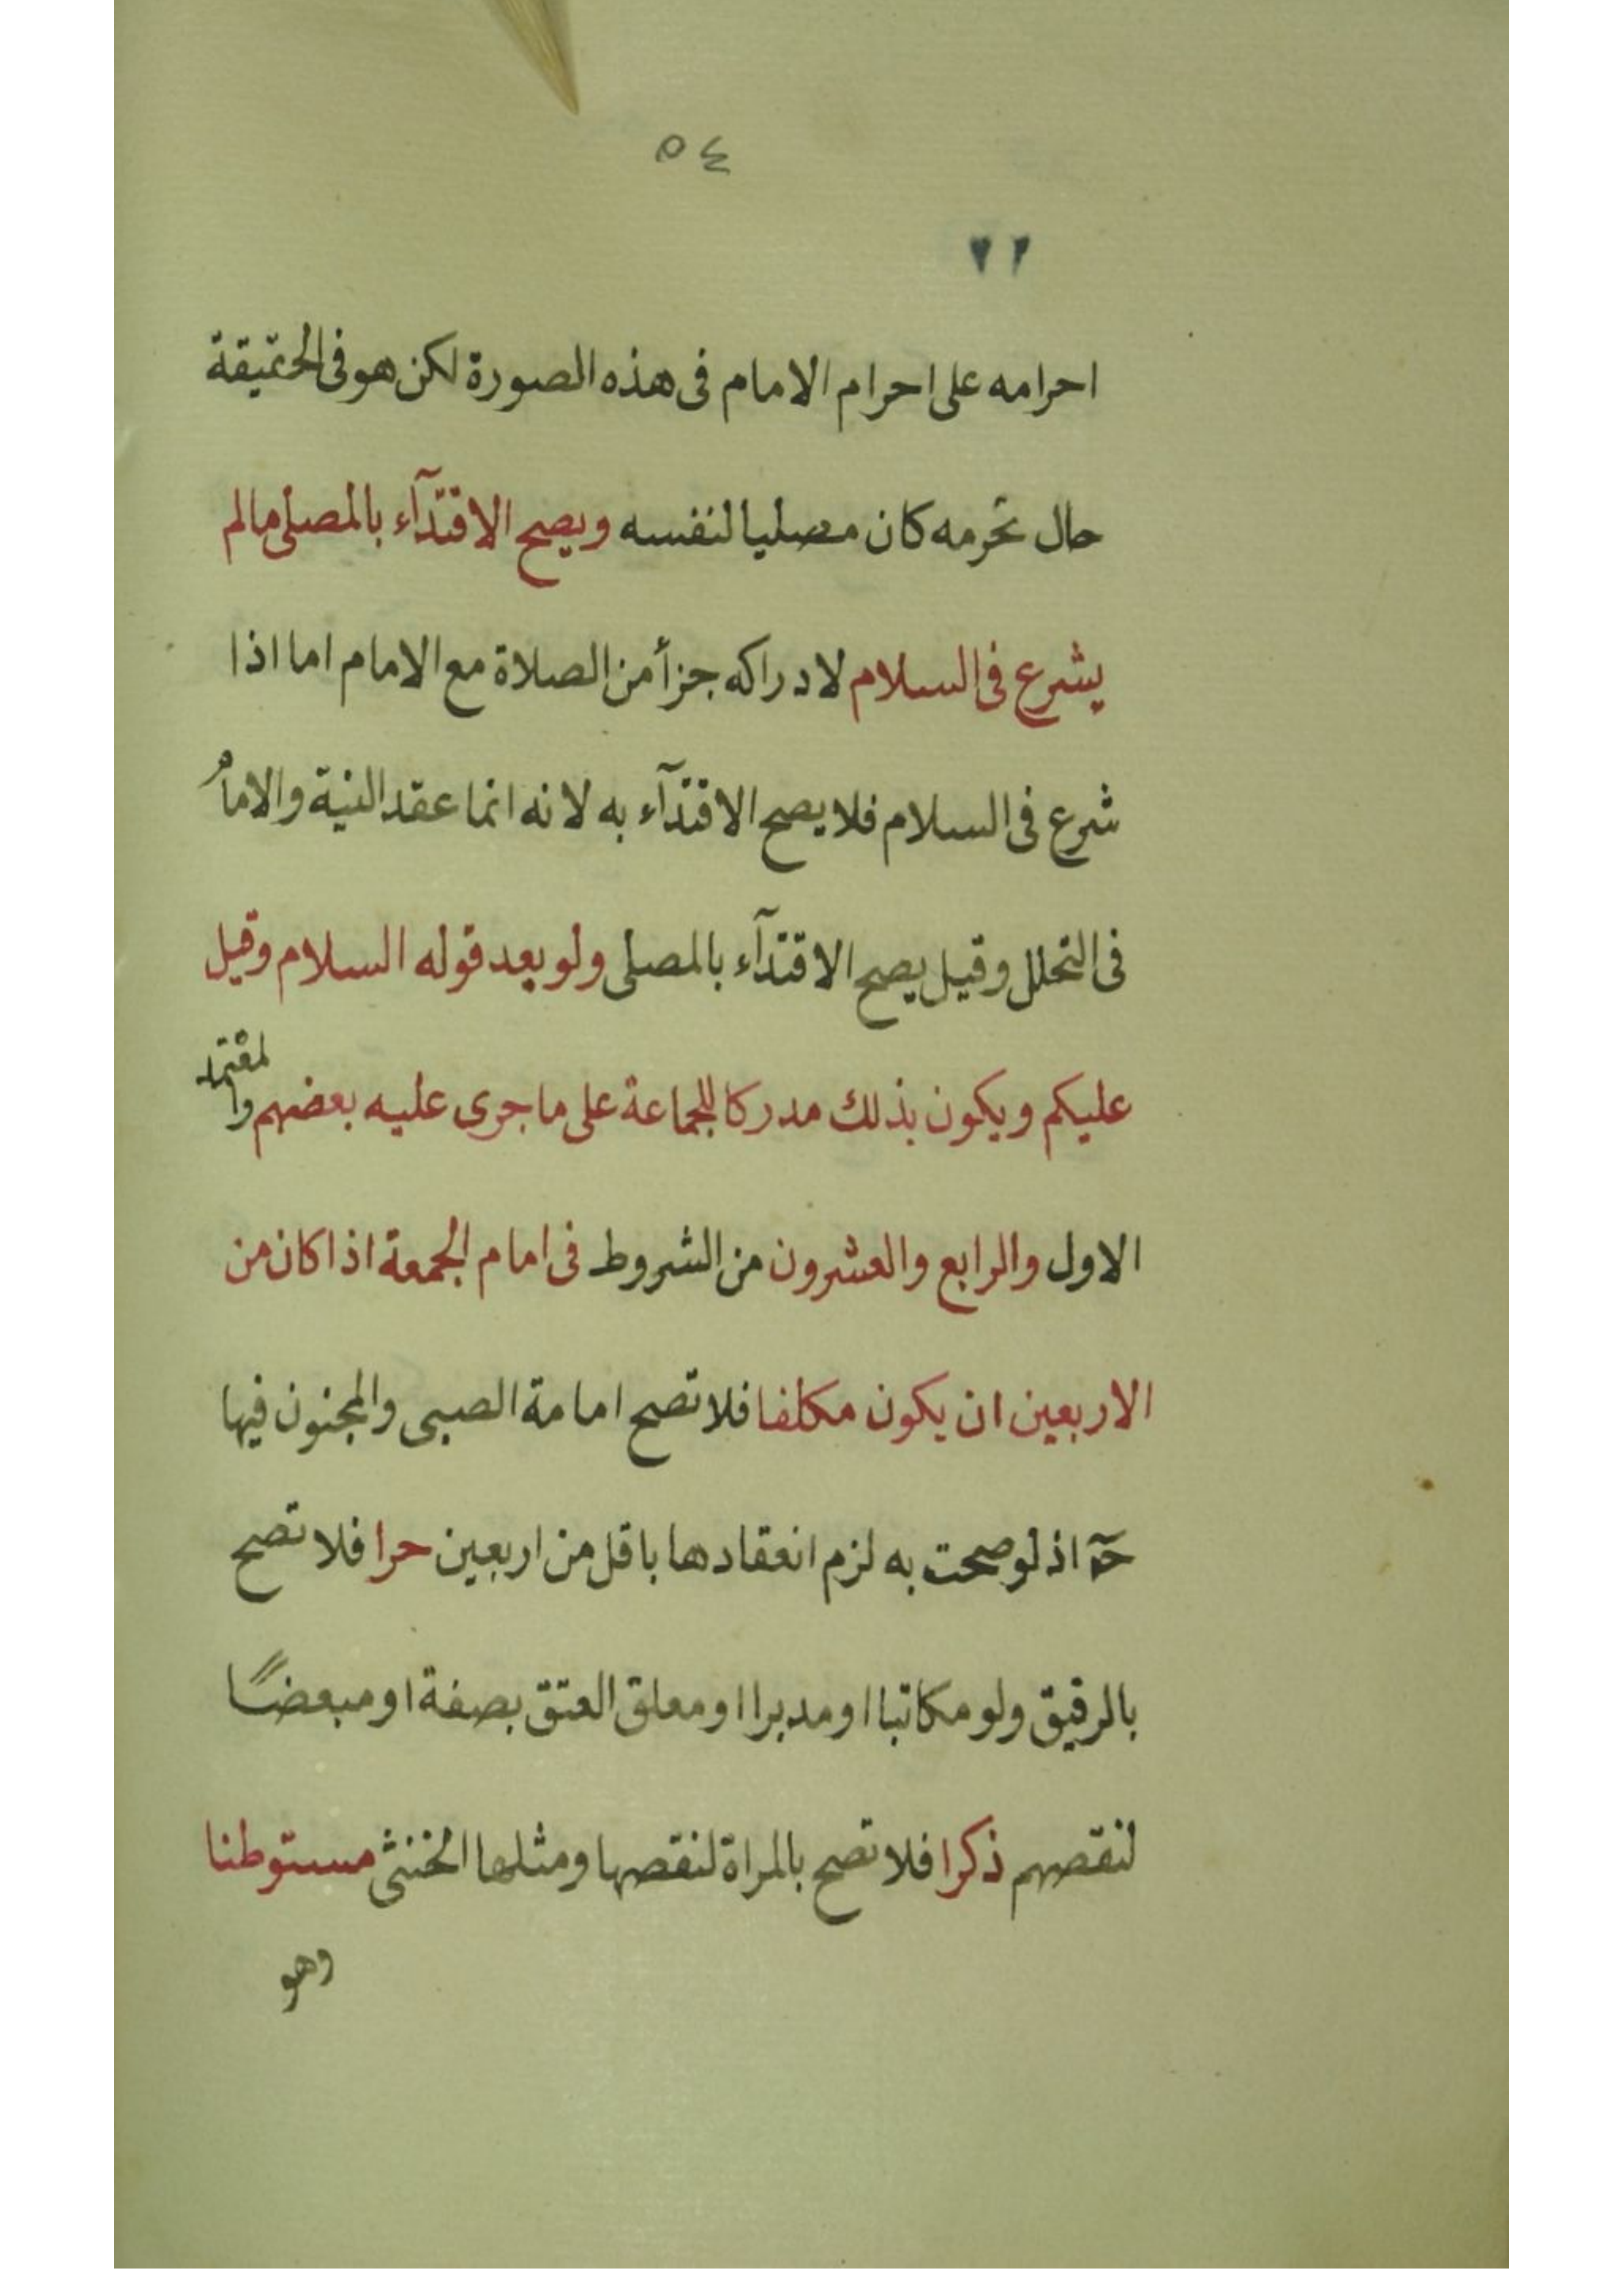 ٥٤
٧٢
احرامه على احرام الامام فى هذه الصورة لكن هو فى الحقيقة
حال تحرمه كان مصليا لنفسه ويصح الاقتدآء بالمصلى مالم
يشرع فى السلام لادراكه جزأ من الصلاة مع الامام اما اذا
شرع فى السلام فلا يصح الاقتدآء به لانه انما عقد النية والامام
فى التحلل وقيل يصح الاقتدآء بالمصلى ولو بعد قوله السلام وقيل
عليكم ويكون بذلك مدركا للجماعة على ما جرى عليه بعضهم والمعتمد
الاول والرابع والعشرون من الشروط فى امام الجمعة اذا كان من
الاربعين ان يكون مكلفا فلا تصح امامة الصبى والمجنون فيها
حٓ اذ لو صحت به لزم انعقادها باقل من اربعين حرا فلا تصح
بالرقيق ولو مكاتبا او مدبرا او معلق العتق بصفة او مبعضًا
لنقصهم ذكرا فلا تصح بالمراة لنقصها ومثلها الخنثى مستوطنا
وهو